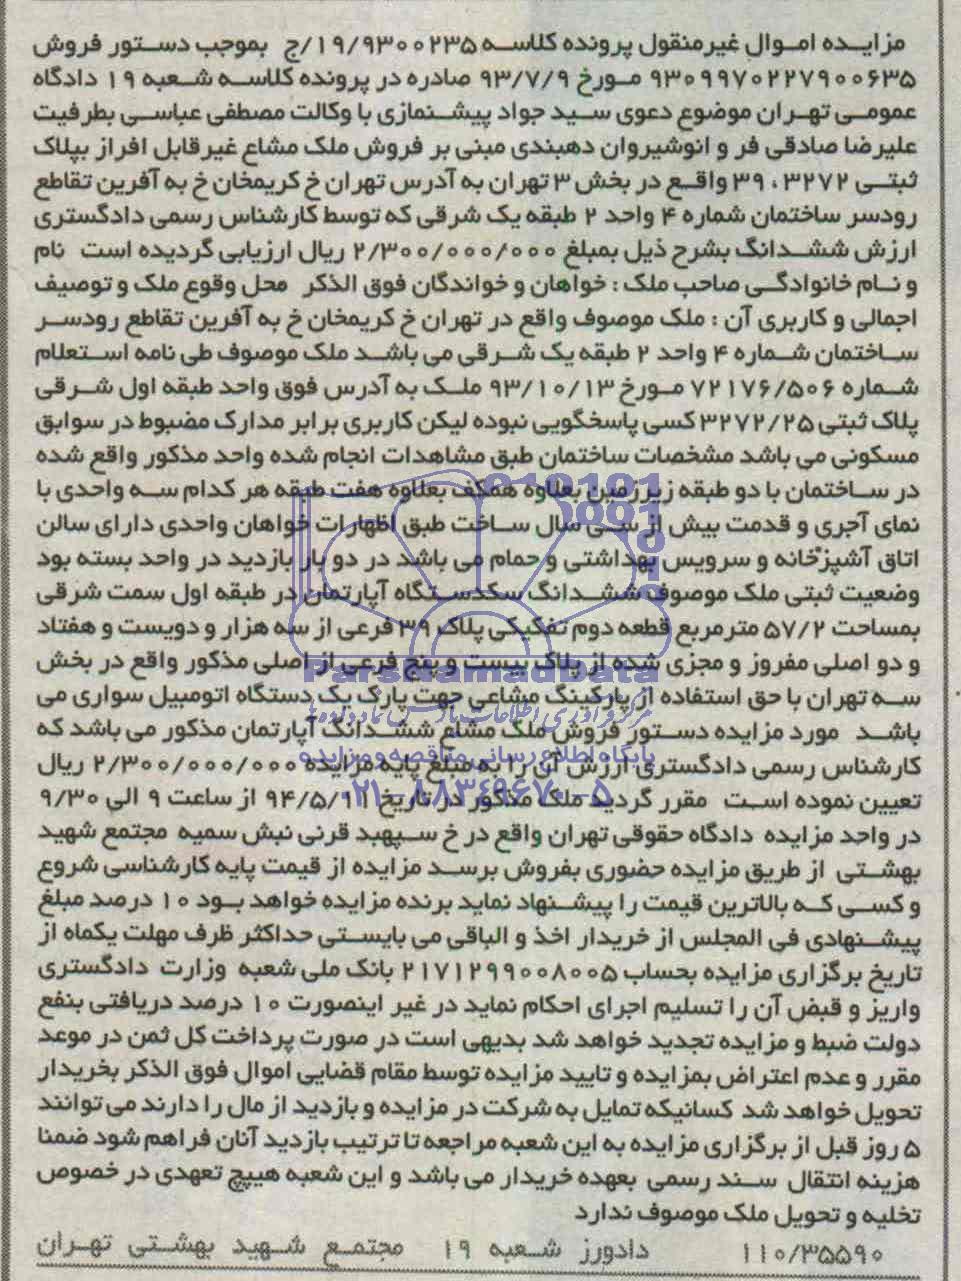 مزایده اموال غیرمنقول پرونده کلاسه ۱۹/۹۳۰۰۲۳۵/ج بموجب دستور فروش
۹۳۰۹۹۷۰۲۲۷۹۰۰۶۳۵ مورخ ۹۳/۷/۹ صادره در پرونده کلاسه شعبه ۱۹ دادگاه
عمومی تهران موضوع دعوی سید جواد پیشنمازی با وکالت مصطفی عباسی بطرفیت
علیرضا صادقی فر و انوشیروان دهبندی مبنی بر فروش ملک مشاع غیرقابل افراز بپلاک
ثبتی ۳۹،۳۲۷۲ واقع در بخش ۳ تهران به آدرس تهران خ کریمخان خ به آفرین تقاطع
رودسر ساختمان شماره ۴ واحد ۲ طبقه یک شرقی که توسط کارشناس رسمی دادگستری
ارزش ششدانگ بشرح ذیل بمبلغ ۲/۳۰۰/۰۰۰/۰۰۰ ریال ارزیابی گردیده است نام
و نام خانوادگی صاحب ملک : خواهان و خواندگان فوق الذکر محل وقوع ملک و توصیف
اجمالی و کاربری آن : ملک موصوف واقع در تهران خ کریمخان خ به آفرین تقاطع رودسر
ساختمان شماره ۴ واحد ۲ طبقه یک شرقی می باشد ملک موصوف طی نامه استعلام
شماره ۷۲۱۷۶/۵۰۶ مورخ ۹۳/۱۰/۱۳ ملک به آدرس فوق واحد طبقه اول شرقی
پلاک ثبتی ۳۲۷۲/۲۵ کسی پاسخگویی نبوده لیکن کاربری برابر مدارک مضبوط در سوابق
مسکونی می باشد مشخصات ساختمان طبق مشاهدات انجام شده واحد مذکور واقع شده
در ساختمان با دو طبقه زیرزمین بعلاوه همکف بعلاوه هفت طبقه هر کدام سه واحدی با
نمای آجری و قدمت بیش از سی سال ساخت طبق اظهارات خواهان واحدی دارای سالن
اتاق آشپزخانه و سرویس بهداشتی و حمام می باشد در دو بار بازدید در واحد بسته بود
وضعیت ثبتی ملک موصوف ششدانگ سکدستگاه آپارتمان در طبقه اول سمت شرقی
بمساحت ۵۷/۲ مترمربع قطعه دوم تفکیکی پلاک ۳۹ فرعی از سه هزار و دویست و هفتاد
و دو اصلی مفروز و مجزی شده از پلاک بیست و پنج فرعی از اصلی مذکور واقع در بخش
سه تهران با حق استفاده از پارکینگ مشاعی جهت پارک یک دستگاه اتومبیل سواری می
باشد مورد مزایده دستور فروش ملک مشاع ششدانگ آپارتمان مذکور می باشد که
کارشناس رسمی دادگستری ارزش آن را به مبلغ پایه مزایده ۲/۳۰۰/۰۰۰/۰۰۰ ریال
تعیین نموده است مقرر گردید ملک مذکور در تاریخ ۹۴/۵/۱۱ از ساعت ۹ الی ۹/۳۰
در واحد مزایده دادگاه حقوقی تهران واقع در خ سپهبد قرنی نبش سمیه مجتمع شهید
بهشتی از طریق مزایده حضوری بفروش برسد مزایده از قیمت پایه کارشناسی شروع
و کسی که بالاترین قیمت را پیشنهاد نماید برنده مزایده خواهد بود ۱۰ درصد مبلغ
پیشنهادی فی المجلس از خریدار اخذ و الباقی می بایستی حداکثر ظرف مهلت یکماه از
تاریخ برگزاری مزایده بحساب ۲۱۷۱۲۹۹۰۰۸۰۰۵ بانک ملی شعبه وزارت دادگستری
واریز و قبض آن را تسلیم اجرای احکام نماید در غیر اینصورت ۱۰ درصد دریافتی بنفع
دولت ضبط و مزایده تجدید خواهد شد بدیهی است در صورت پرداخت کل ثمن در موعد
مقرر و عدم اعتراض بمزایده و تایید مزایده توسط مقام قضایی اموال فوق الذکر بخریدار
تحویل خواهد شد کسانیکه تمایل به شرکت در مزایده و بازدید از مال را دارند می توانند
۵ روز قبل از برگزاری مزایده به این شعبه مراجعه تا ترتیب بازدید آنان فراهم شود ضمنا
هزینه انتقال سند رسمی بعهده خریدار می باشد و این شعبه هیپچ تعهدی در خصوص
تخلیه و تحویل ملک موصوف ندارد
۱۱۰/۳۵۵۹۰ دادورز شعبه ۱۹ مجتمع شهید بهشتی تهران
ParsNamadData
مرکز فرآوری اطلاعات پارس نماد داده ها
پایگاه اطلاع رسانی مناقصه و مزایده
۰۲۱-۸۸۳۴۹۶۷۰-۵